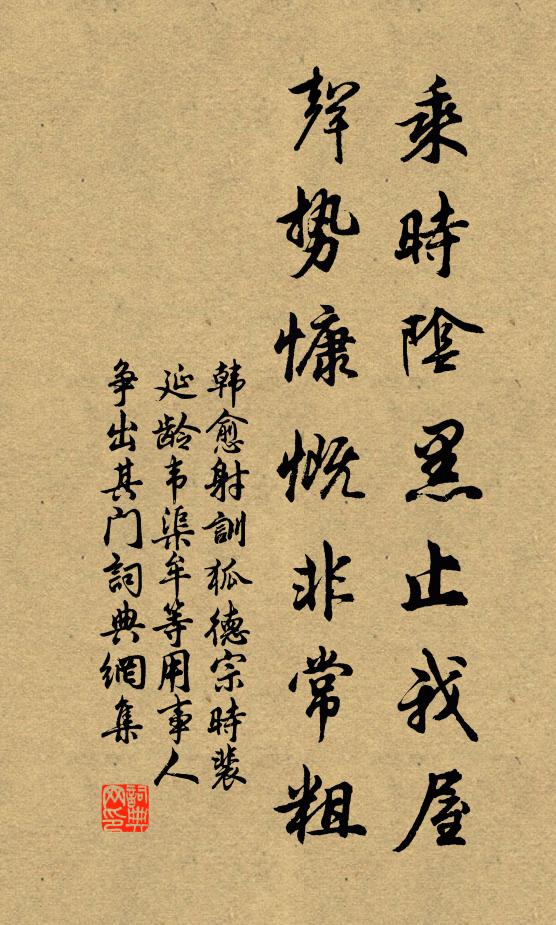 乘時陰黑止我屋
聲勢慷慨非常粗
韩愈射訓狐德宗時裴
延龄韦渠牟等用事人
争出其门詞典網集
詞典网印